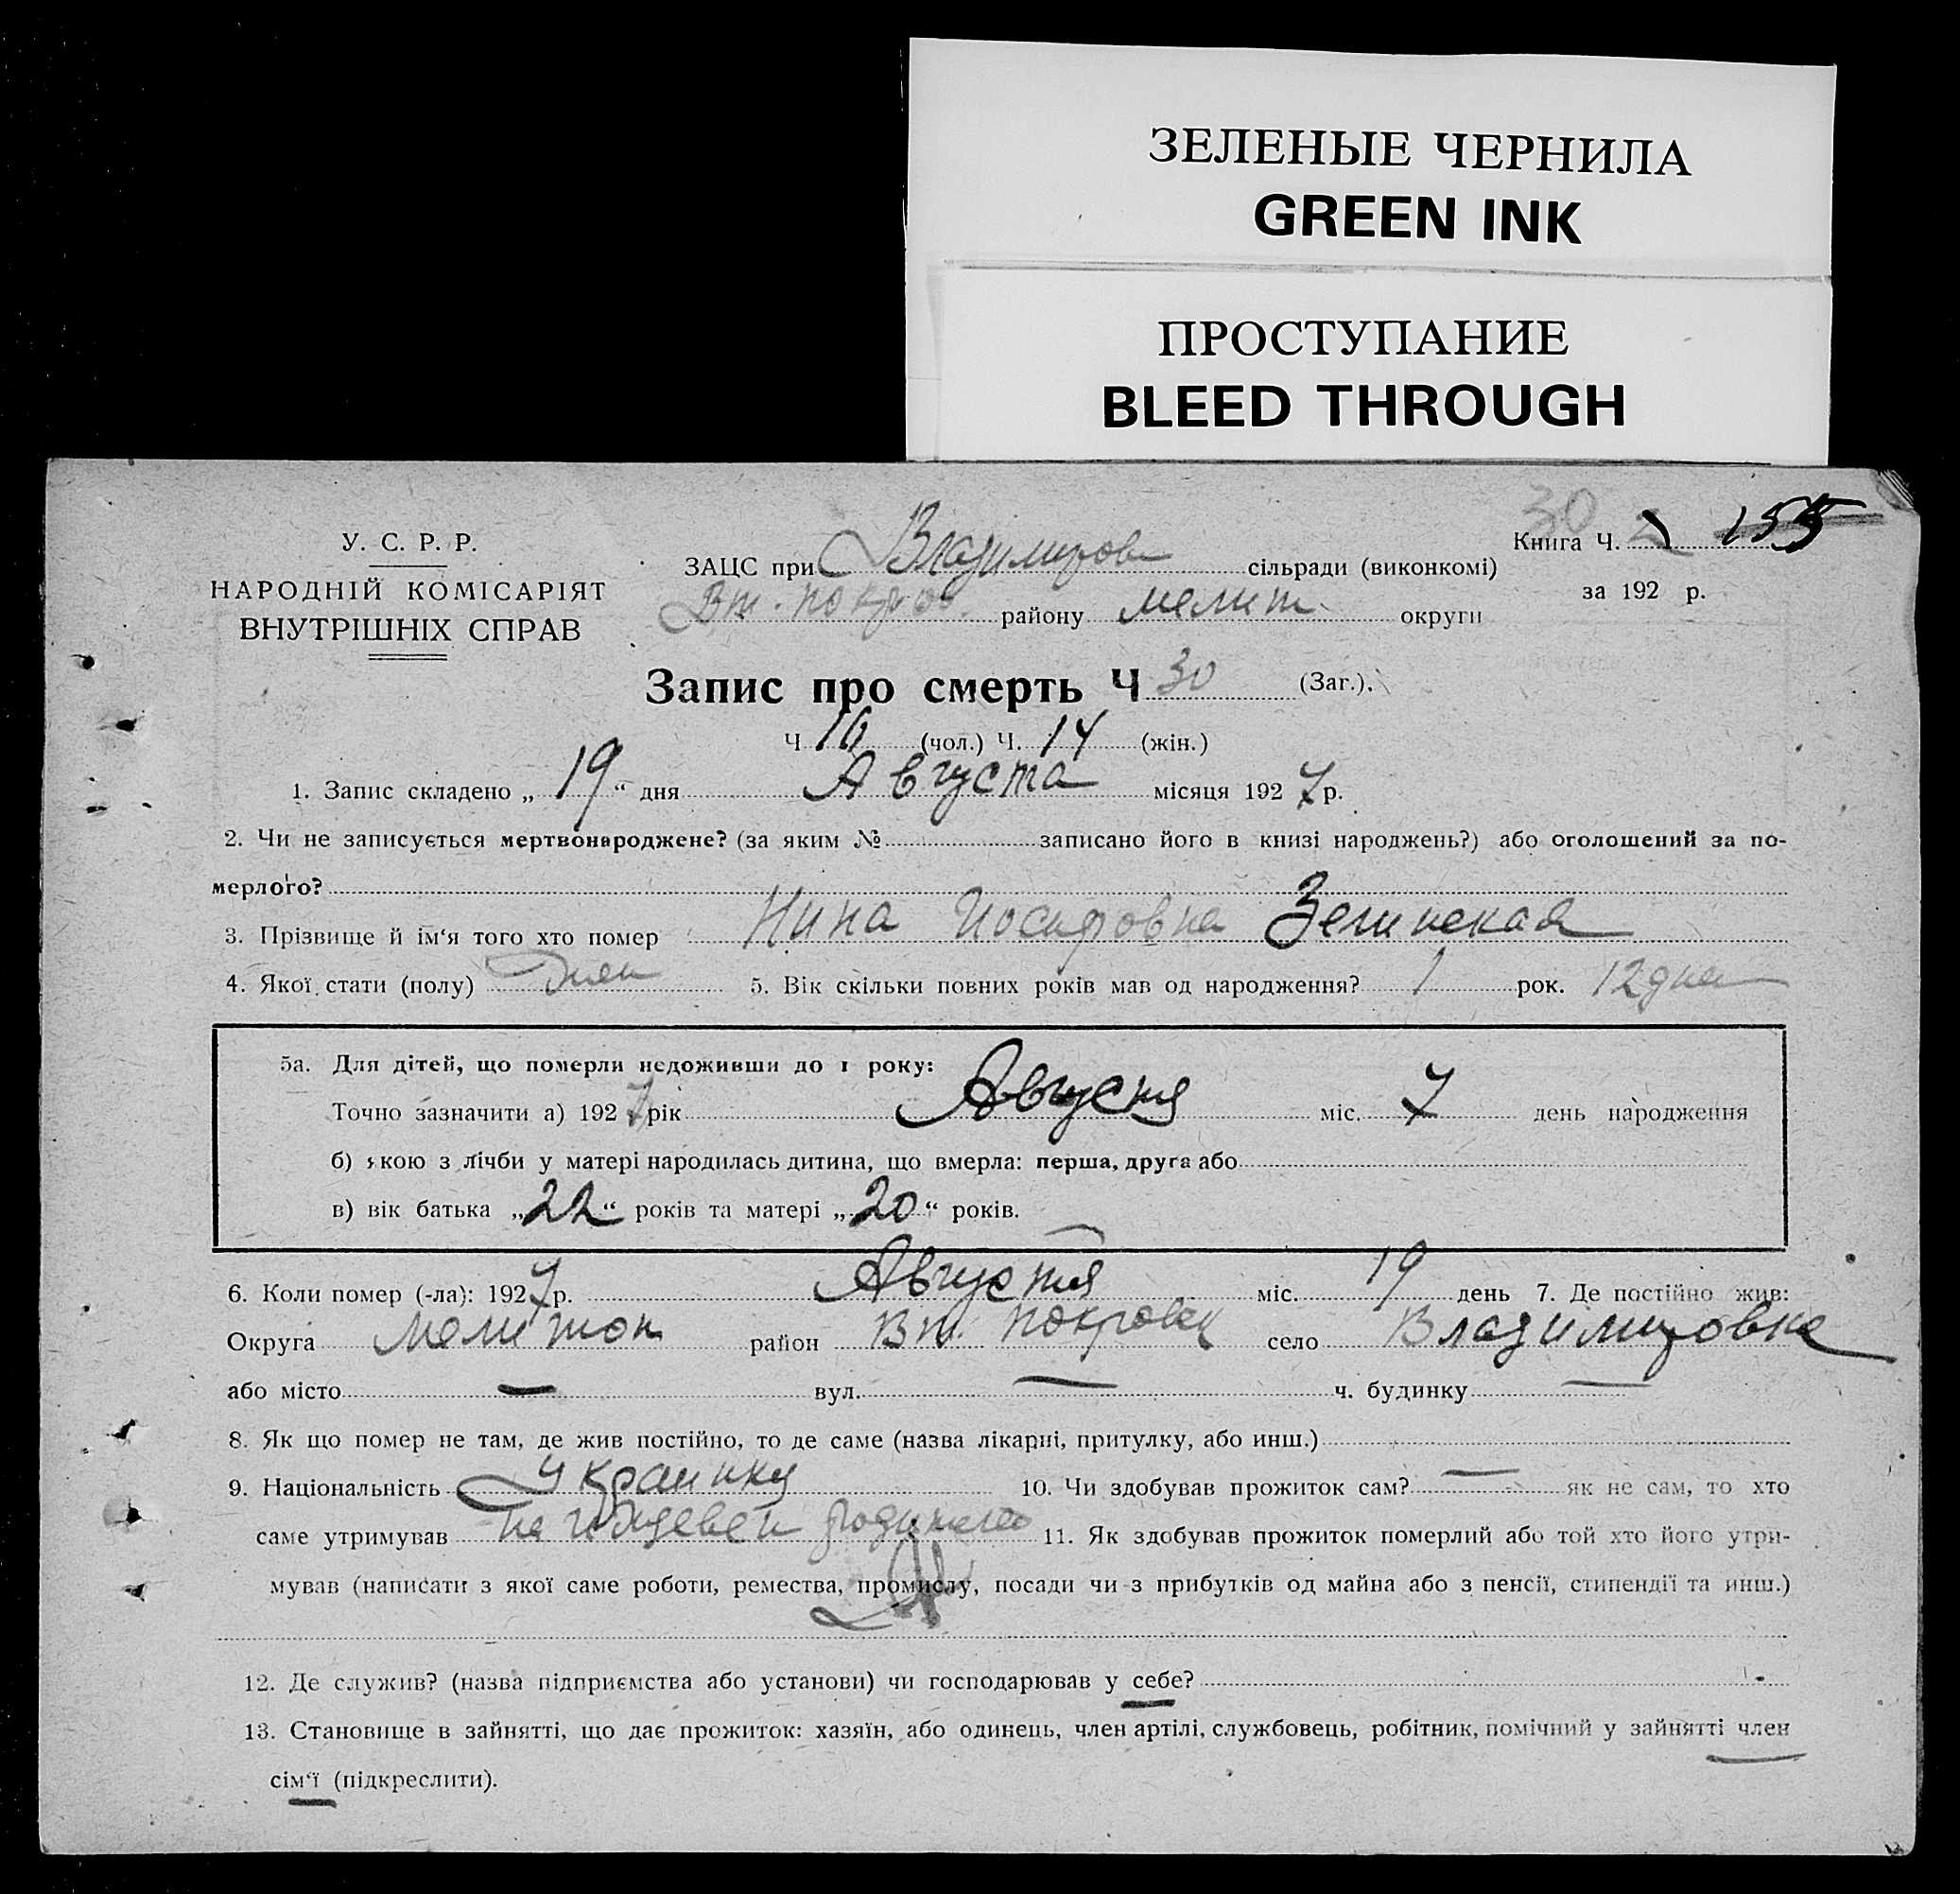 ЗЕЛЕНЫЕ ЧЕРНИЛА
GREEN INK
ПРОСТУПАНИЕ
BLEED THROUGH
30
Книга Ч. 155
за 192 р.
У. С. Р. Р.
НАРОДНІЙ КОМІСАРІЯТ
ВНУТРІШНІХ СПРАВ
ЗАЦС при Владимиров сільради (виконкомі)
Вт. покров. району мелит. округи
Запис про смерть Ч 30 (Заг.).
Ч 16 (чол.) Ч. 14 (жін.)
1. Запис складено „ 19 “ дня Августа місяця 1927 р.
2. Чи не записується мертвонароджене? (за яким № записано його в книзі народжень?) або оголошений за по-
мерлого?
3. Прізвище й ім‘я того хто помер Нина Иосифовна Зелинская
4. Якої стати (полу) 5. Вік скільки повних років мав од народження? 1 рок. 12 дня
5а. Для дітей, що померли недоживши до 1 року:
Точно зазначити а) 1927 рік Августа міс. 7 день народження
б) якою з лічби у матері народилась дитина, що вмерла: перша, друга або
в) вік батька „22“ років та матері „20“ років.
6. Коли помер (-ла): 1927 р. Августа міс. 19 день 7. Де постійно жив:
Округа Мелитоп район Вт. Покровск село Владимировка
або місто — вул. — ч. будинку —
8. Як що помер не там, де жив постійно, то де саме (назва лікарні, притулку, або инш.)
9. Національність Украинка 10. Чи здобував прожиток сам? — як не сам, то хто
саме утримував на иждевеи родителей 11. Як здобував прожиток померлий або той хто його утри-
мував (написати з якої саме роботи, ремества, промислу, посади чи з прибутків од майна або з пенсії, стипендії та инш.)
12. Де служив? (назва підприємства або установи) чи господарював у себе?
13. Становище в зайнятті, що дає прожиток: хазяїн, або одинець, член артілі, службовець, робітник, помічний у зайнятті член
сім‘ї (підкреслити).